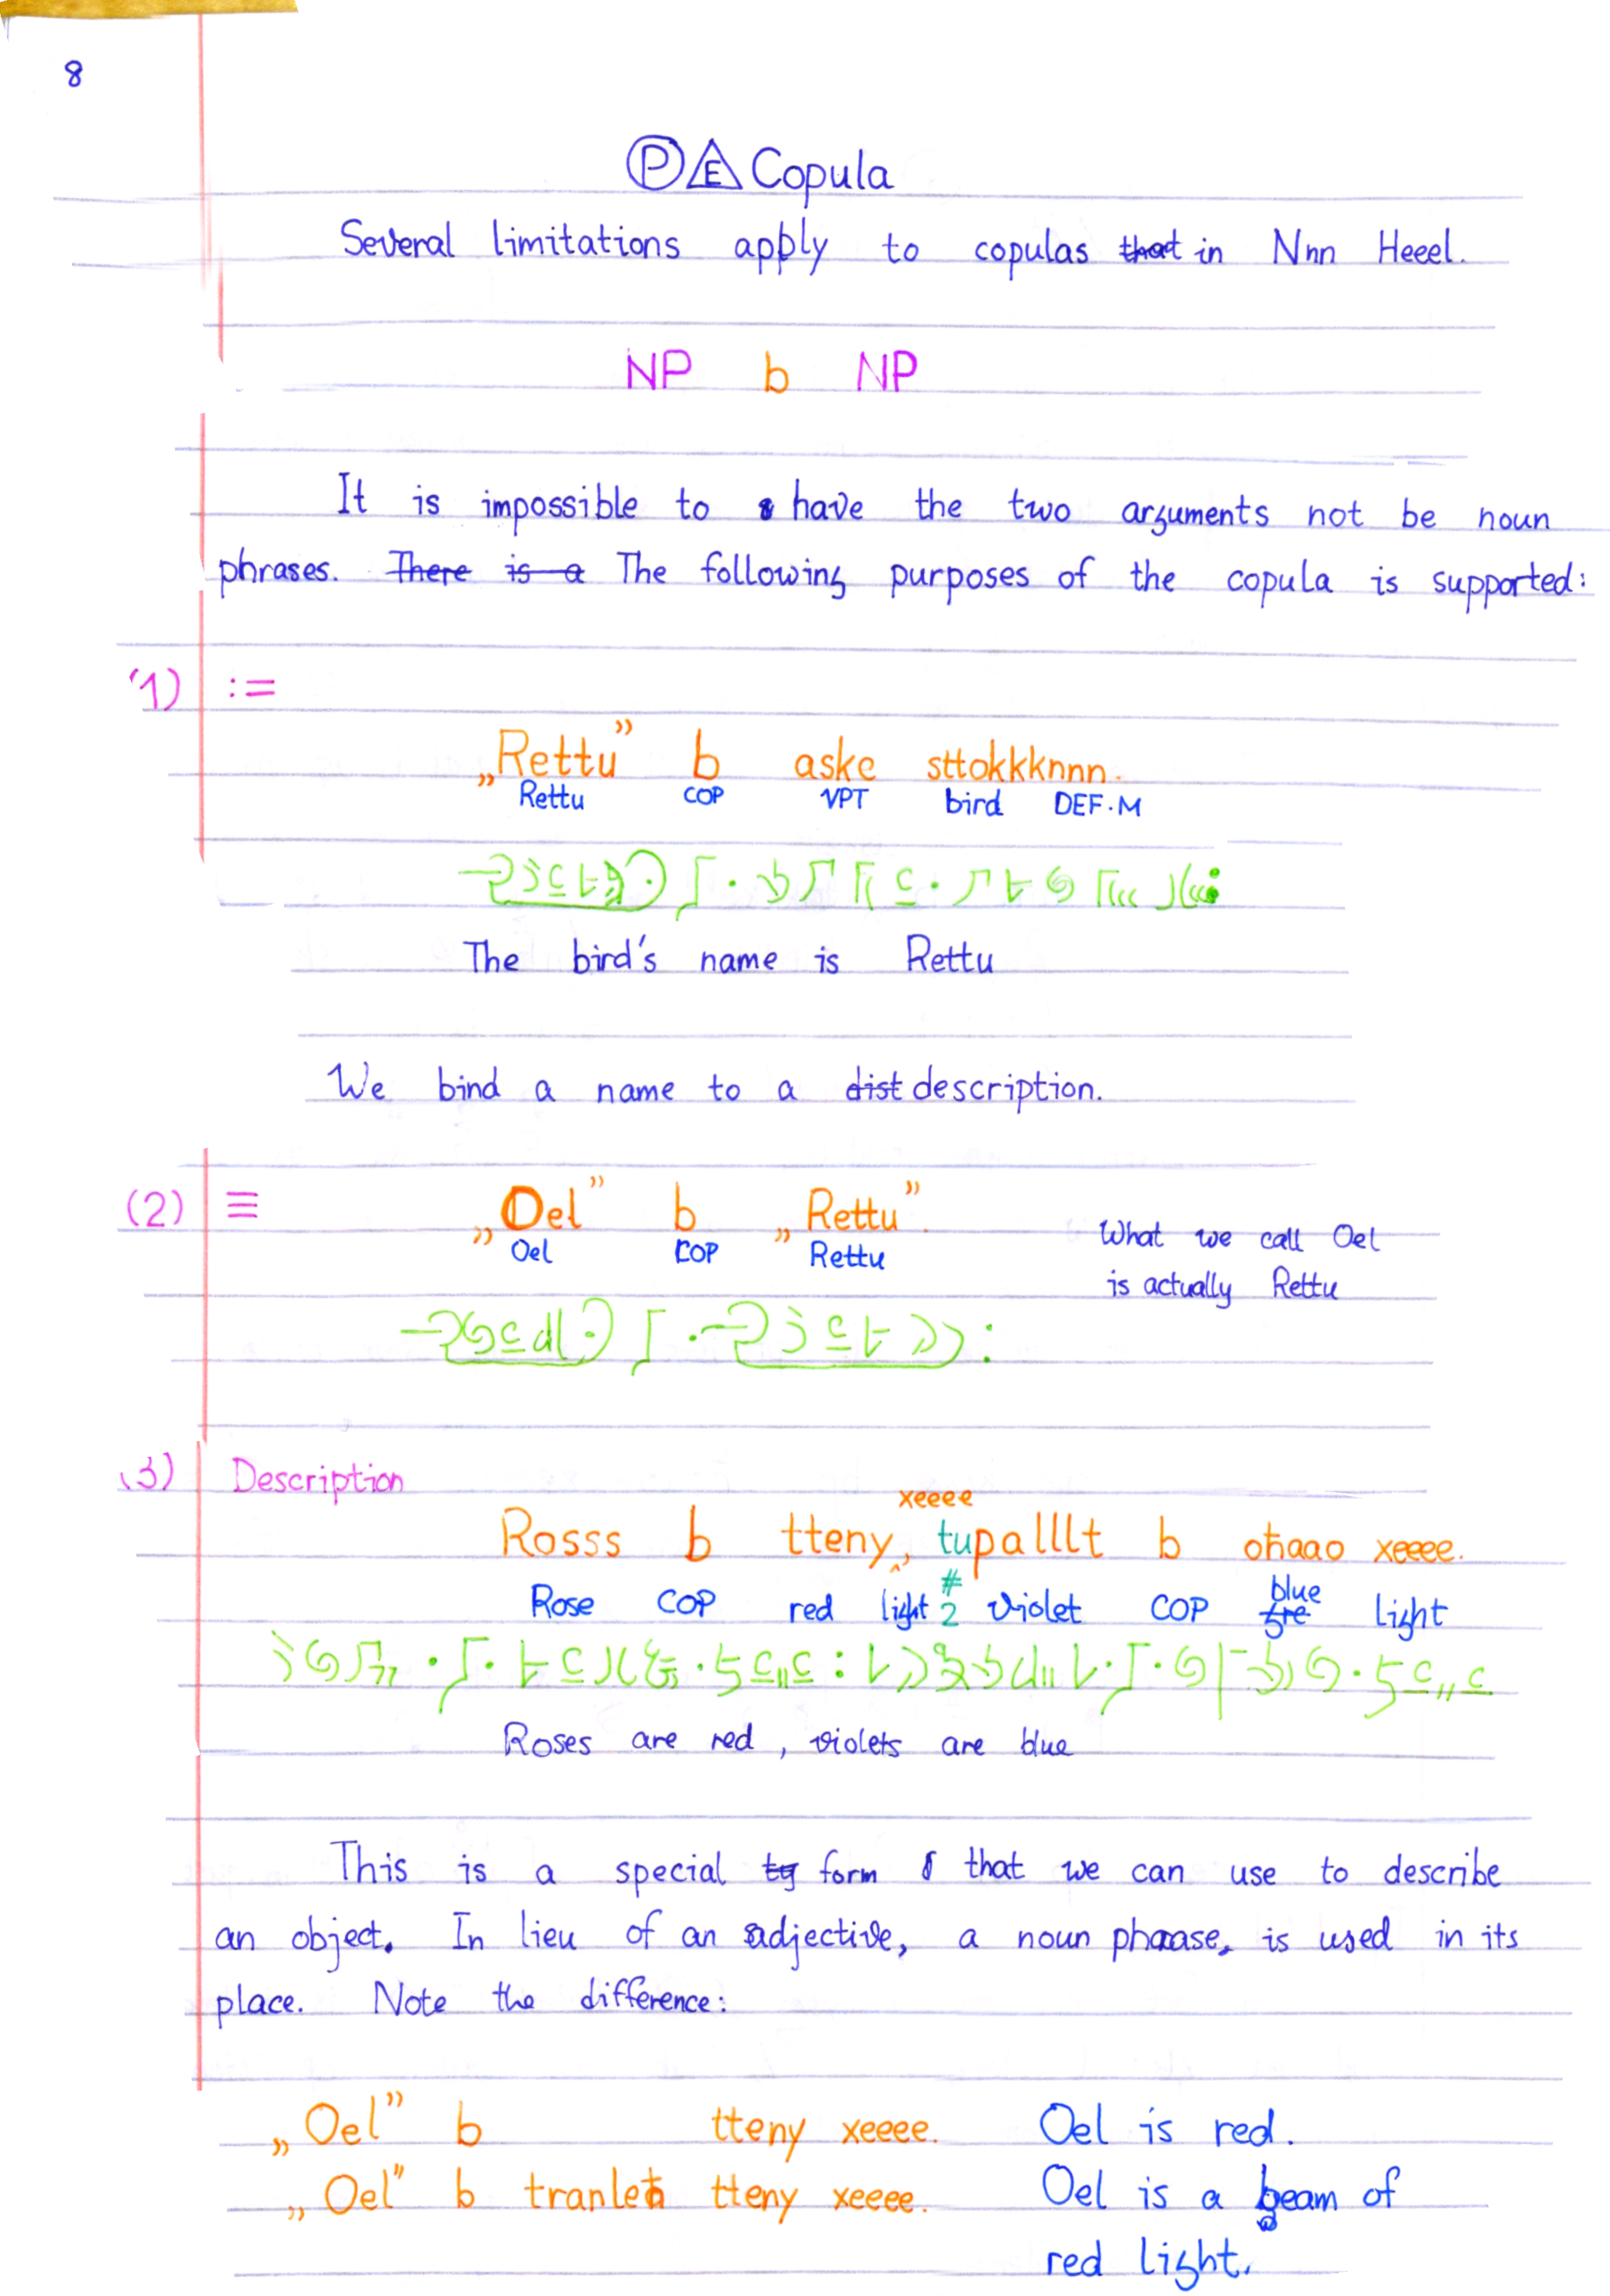 8
Ⓟ E Copula
Several limitations apply to copulas that in Nnn Heeel.
NP b NP
It is impossible to have the two arguments not be noun
phrases. There is a The following purposes of the copula is supported:
(1) :=
„Rettu” b aske sttokkknnn.
Rettu COP VPT bird DEF.M
The bird's name is Rettu
We bind a name to a dist description.
(2) ≡ „Oel” b „Rettu”.
Oel COP Rettu
What we call Oel
is actually Rettu
(3) Description
xeeee
Rosss b tteny, tupalllt b ohaao xeeee.
Rose COP red light # 2 violet COP blue light
Roses are red, violets are blue
This is a special ty form that we can use to describe
an object. In lieu of an adjective, a noun phrase, is used in its
place. Note the difference:
„Oel” b tteny xeeee. Oel is red.
„Oel” b tteny xeeee. Oel is a beam of
red light.